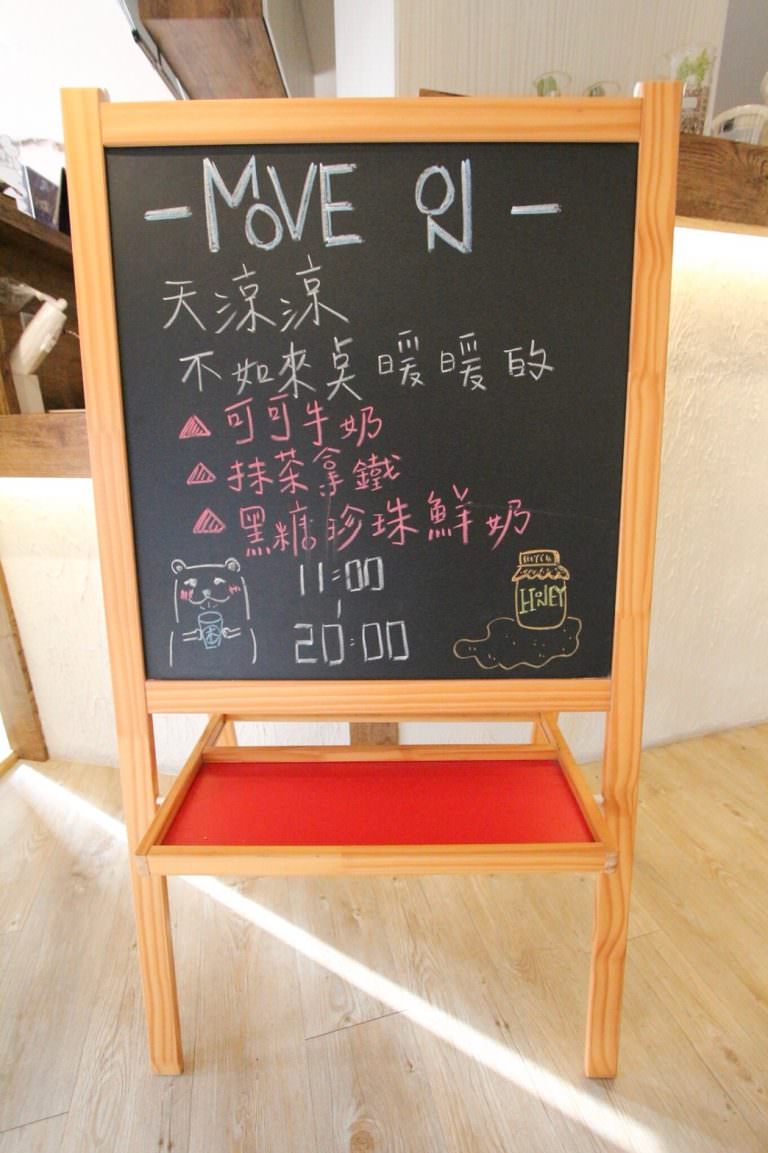 - MOVE ON -
天涼涼
不如來奌暖暖的
▲可可牛奶
▲抹茶拿鐵
▲黑糖珍珠鮮奶
11:00
|
20:00
茶
HONEY